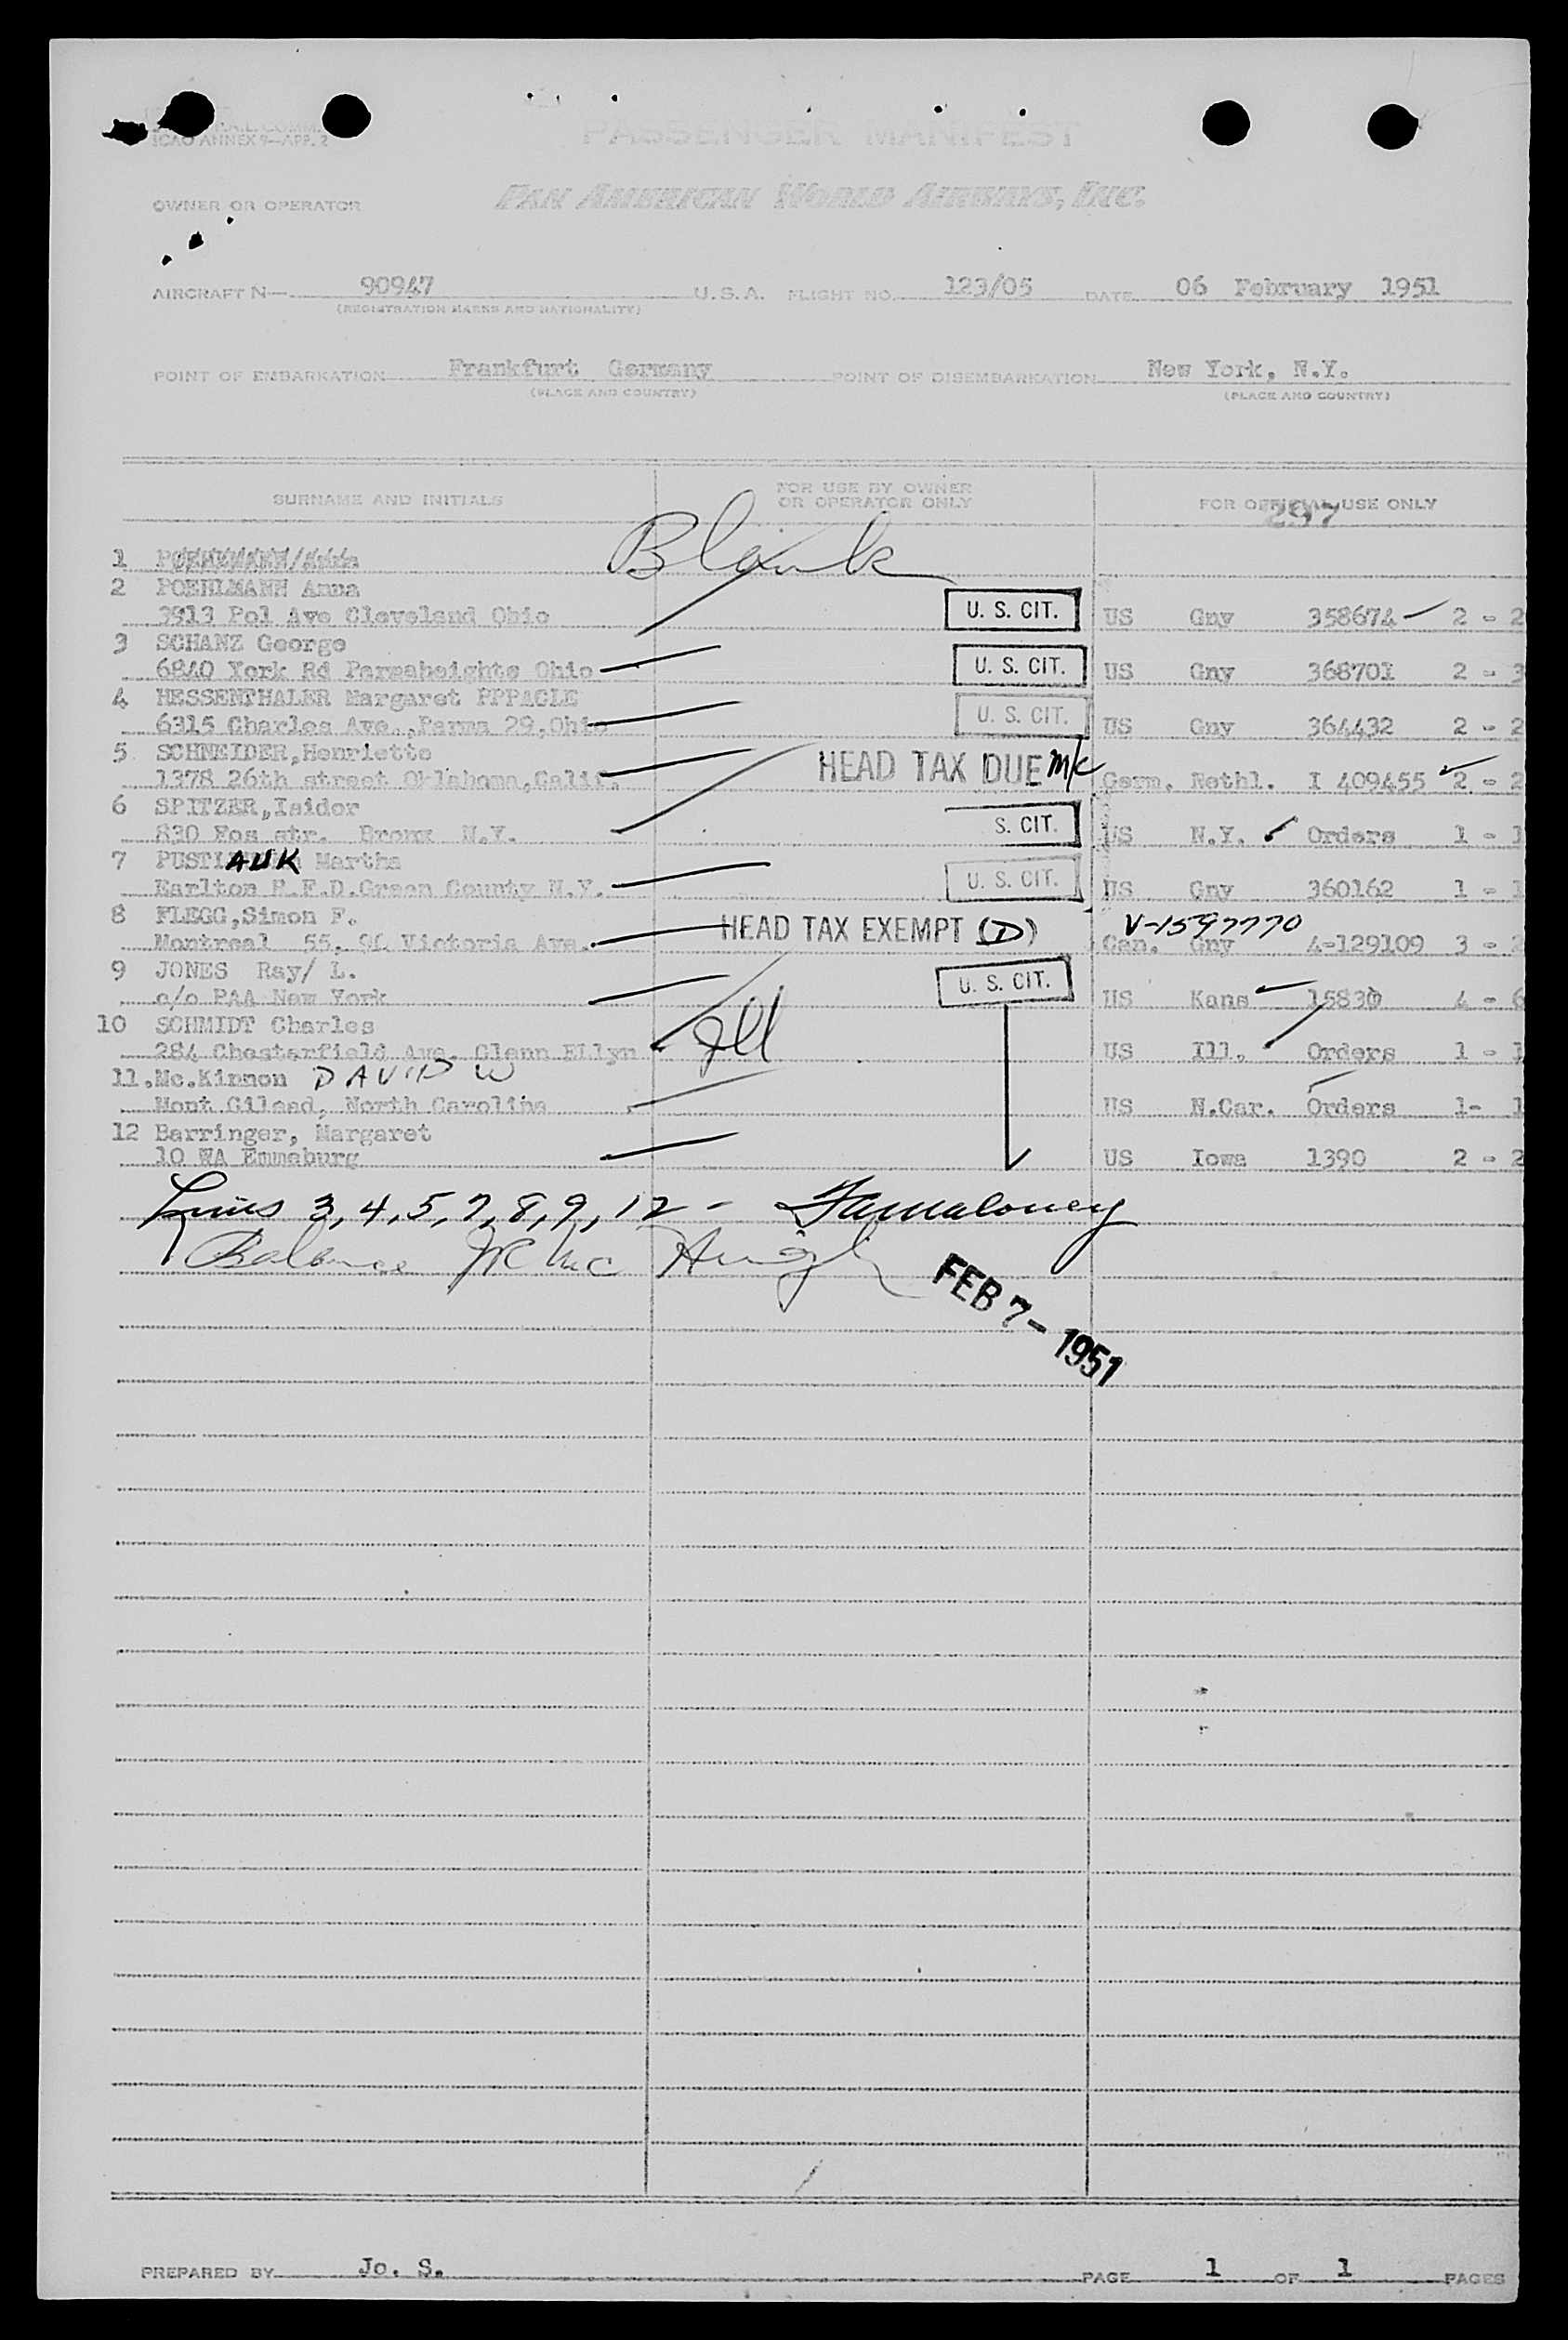 ICAO ANNEX 9—APP. 2
PASSENGER MANIFEST
OWNER OR OPERATOR PAN AMERICAN WORLD AIRWAYS, INC.
AIRCRAFT N— 90947 U.S.A. FLIGHT NO. 123/05 DATE 06 February 1951
(REGISTRATION MARKS AND NATIONALITY)
POINT OF EMBARKATION Frankfurt Germany POINT OF DISEMBARKATION New York, N.Y.
(PLACE AND COUNTRY) (PLACE AND COUNTRY)
SURNAME AND INITIALS FOR USE BY OWNER OR OPERATOR ONLY FOR OFFICIAL USE ONLY
297
1 Blank
2 POEHLMANN Anna
3913 Pol Ave Cleveland Ohio U. S. CIT. US Gny 358674 2 - 2
3 SCHANZ George
6840 York Rd Parmaheights Ohio U. S. CIT. US Gny 368701 2 - 3
4 HESSENTHALER Margaret PPPACLE
6315 Charles Ave.,Parma 29,Ohio U. S. CIT. US Gny 364432 2 - 2
5 SCHNEIDER,Henriette
1378 26th street Oklahoma,Calif. HEAD TAX DUE Germ. Nethl. I 409455 2 - 2
6 SPITZER,Isidor
830 Fos str. Bronx N.Y. S. CIT. US N.Y. Orders 1 - 1
7 PUSTI AUK Martha
Earlton R.F.D.Green County N.Y. U. S. CIT. US Gny 360162 1 - 1
8 FLEGG,Simon F. V-1597770
Montreal 55, Victoria Ave. HEAD TAX EXEMPT (D) Can. Gny 4-129109 3 - 2
9 JONES Ray/ L.
c/o PAA New York U. S. CIT. US Kans 4 - 6
10 SCHMIDT Charles
284 Chesterfield Ave. Glenn Ellyn Ill US Ill. Orders 1 - 1
11.Mc.Kinnon DAVID W
Mont Gilead, North Carolina US N.Car. Orders 1- 1
12 Barringer, Margaret
10 WA Emmsburg US Iowa 1390 2 - 2
Lines 3, 4, 5, 7, 8, 9, 12 -
Balance
FEB 7- 1951
PREPARED BY Jo. S. PAGE 1 OF 1 PAGES